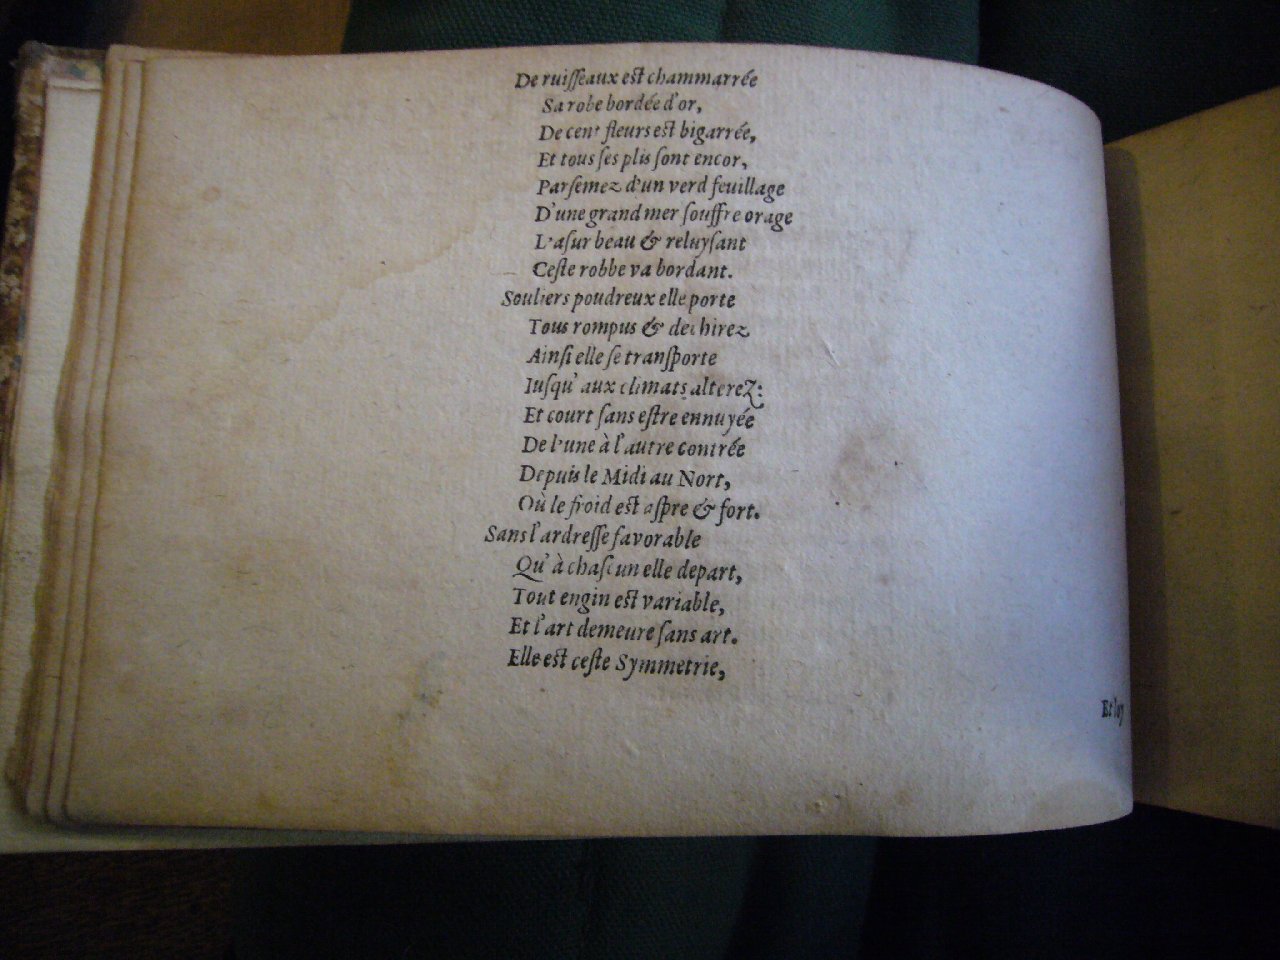 De ruiſſeaux est chammarrée
Sa robe bordée d'or,
De cent fleurs est bigarrée,
Et tous ſes plis ſont encor,
Parſemez d'un verd feuillage
D'une grand mer ſouffre orage
L'aſur beau & reluyſant
Ceſte robbe va bordant.
Souliers poudreux elle porte
Tous rompus & dechirez
Ainſi elle ſe tranſporte
Iuſqu' aux climats alterez:
Et court ſans eſtre ennuyée
De l'une à l'autre contrée
Depuis le Midi au Nort,
Où le froid est aſpre & fort.
Sans l'ardreſſe favorable
Qu' à chaſcun elle depart,
Tout engin est variable,
Et l'art demeure ſans art.
Elle est ceſte Symmetrie,
Et luy